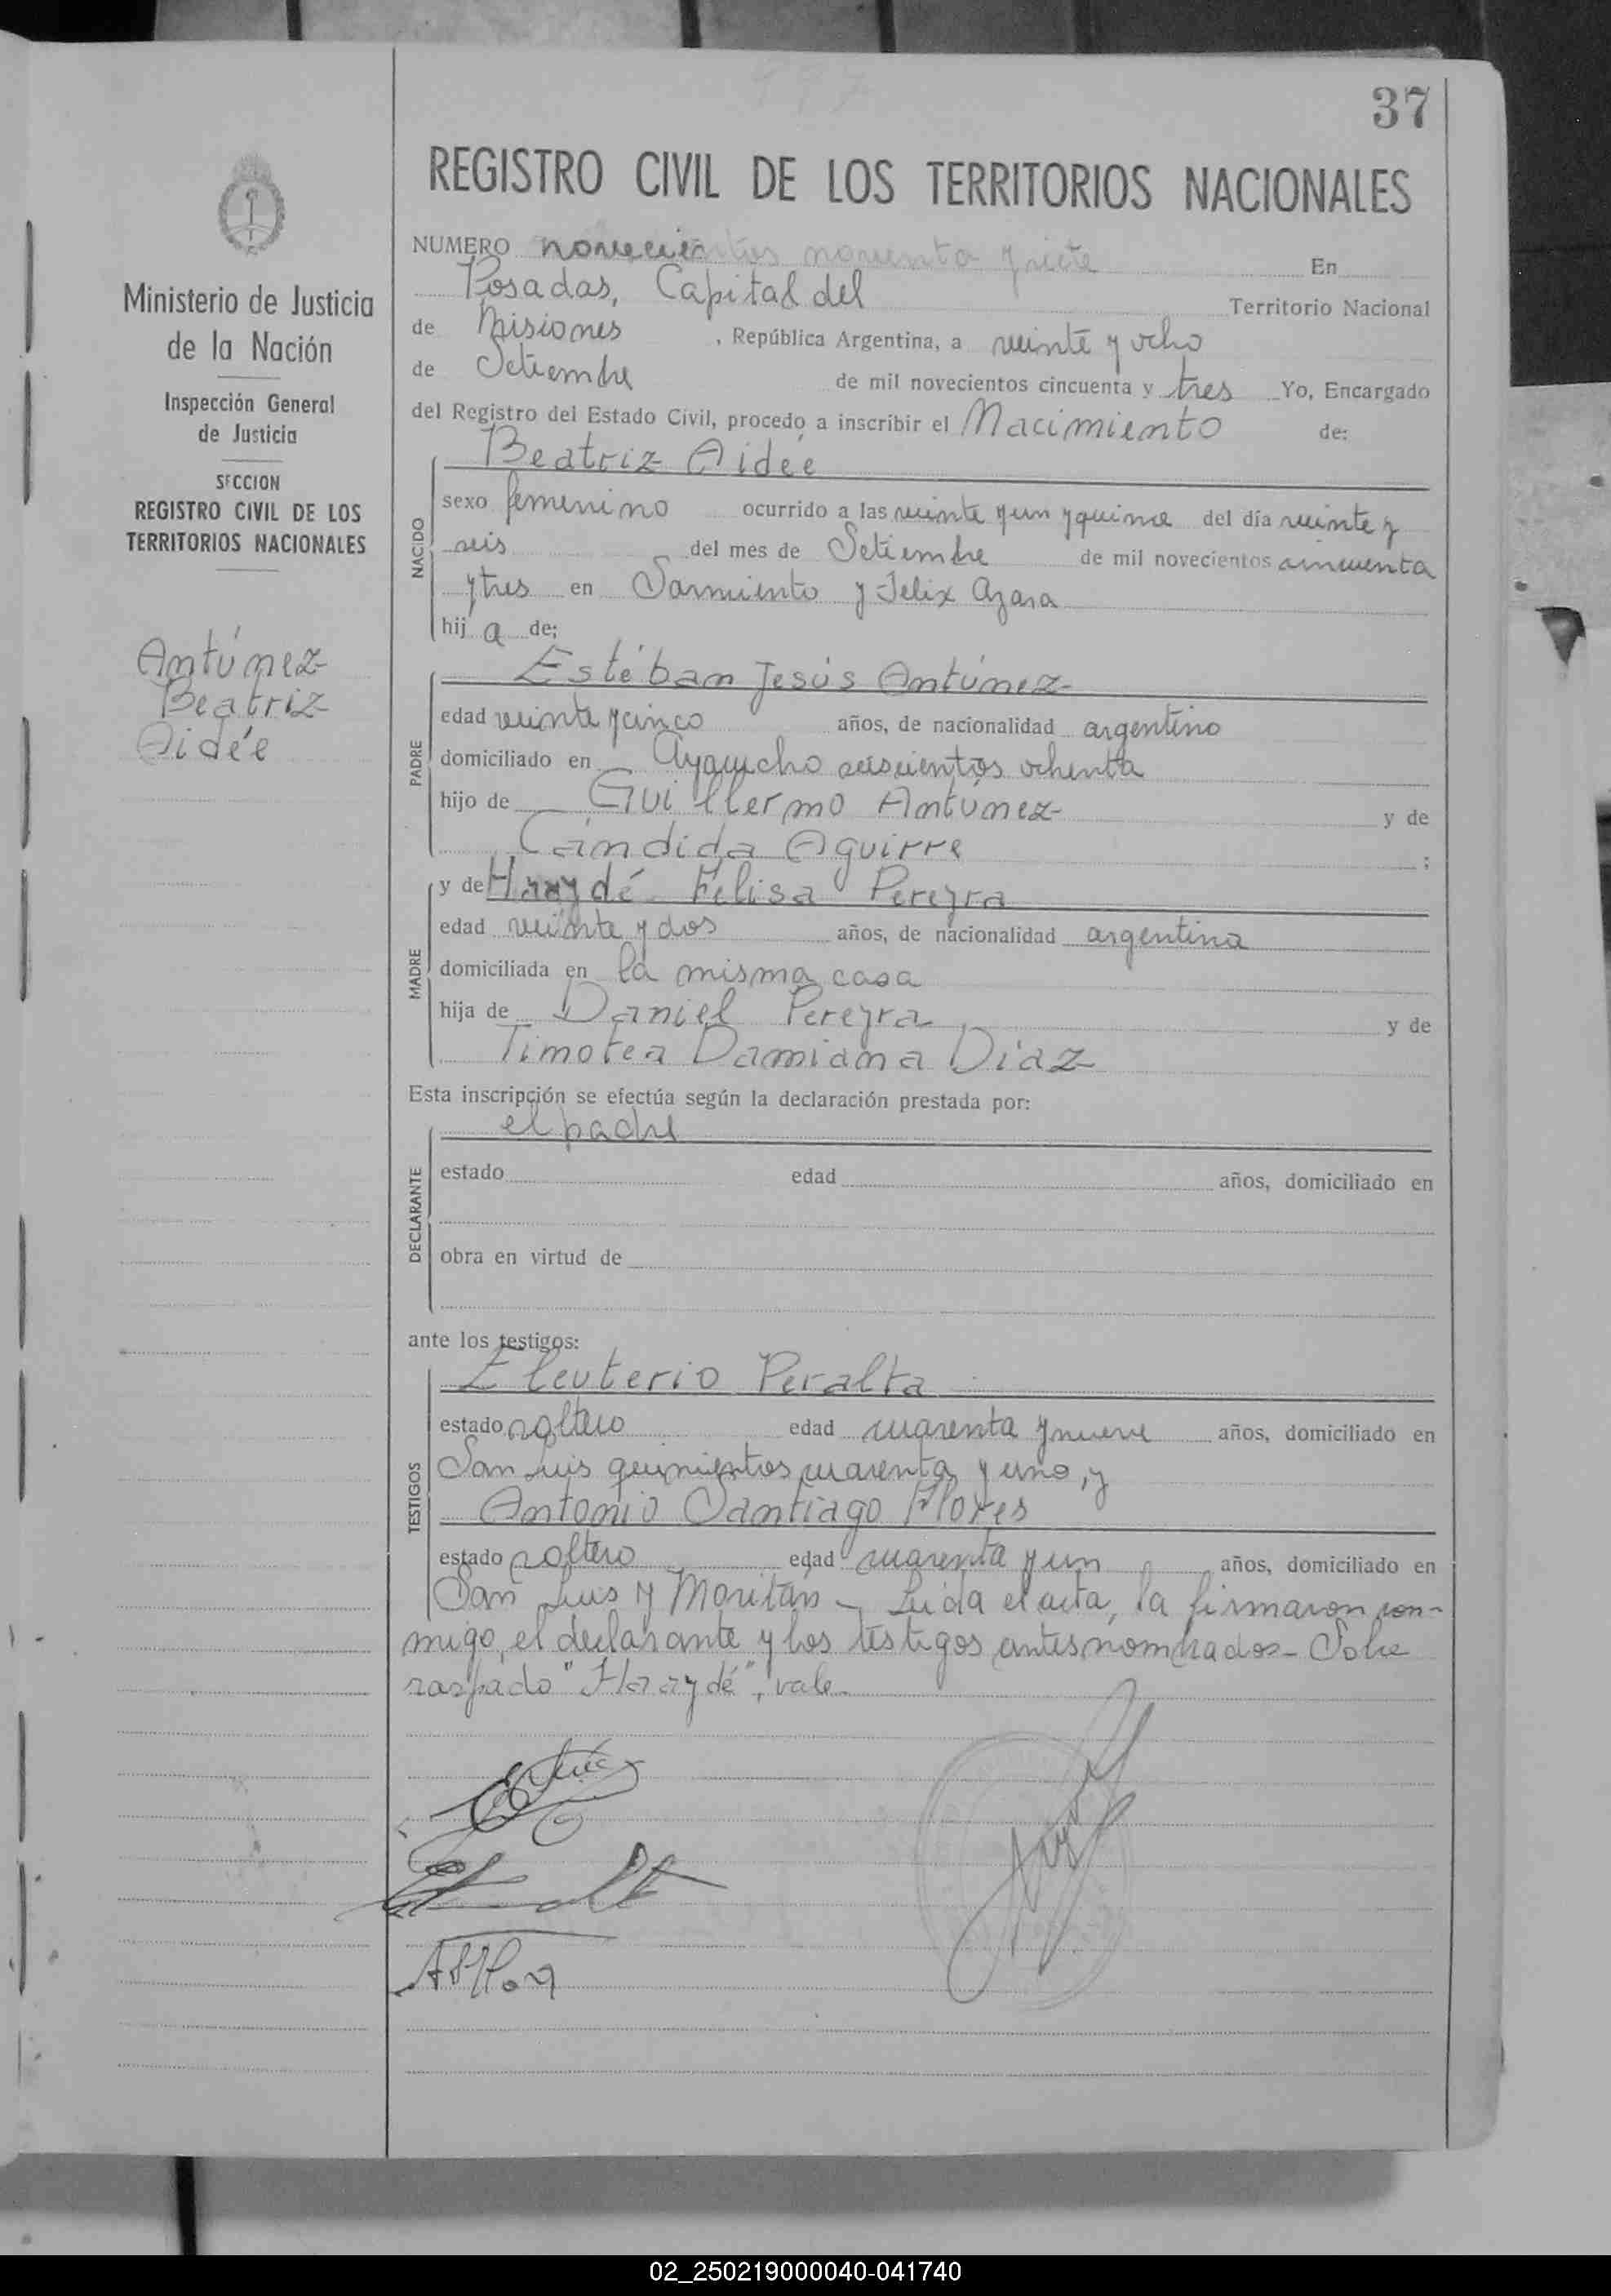 997
37
REGISTRO CIVIL DE LOS TERRITORIOS NACIONALES
Ministerio de Justicia
de la Nación
Inspección General
de Justicia
SECCION
REGISTRO CIVIL DE LOS
TERRITORIOS NACIONALES
Antúnez
Beatriz
Aidée
NUMERO novecientos noventa y siete En
Posadas, Capital del Territorio Nacional
de Misiones , República Argentina, a veinte y ocho
de Setiembre de mil novecientos cincuenta y tres Yo, Encargado
del Registro del Estado Civil, procedo a inscribir el Nacimiento de:
NACIDO
Beatriz Aidée
sexo femenino ocurrido a las veinte y un y quince del día veinte y
seis del mes de Setiembre de mil novecientos cincuenta
y tres en Sarmiento y Felix Azara
hij a de;
PADRE
Estéban Jesús Antúnez
edad veinte y cinco años, de nacionalidad argentino
domiciliado en Ayacucho seiscientos ochenta
hijo de Guillermo Antúnez y de
Cándida Aguirre ;
MADRE
y de Haaydé Felisa Pereyra
edad veinte y dos años, de nacionalidad argentina
domiciliada en la misma casa
hija de Daniel Pereyra y de
Timotea Damiana Díaz
Esta inscripción se efectúa según la declaración prestada por:
DECLARANTE
el padre
estado edad años, domiciliado en
obra en virtud de
ante los testigos:
TESTIGOS
Eleuterio Peralta
estado soltero edad cuarenta y nueve años, domiciliado en
San Luis quinientos cuarenta y uno, y
Antonio Santiago Flores
estado soltero edad cuarenta y un años, domiciliado en
San Luis y Moritán - Leída el acta, la firmaron con-
migo, el declarante y los testigos antes nombrados - Sobre
raspado "Haaydé", vale.
02_250219000040-041740